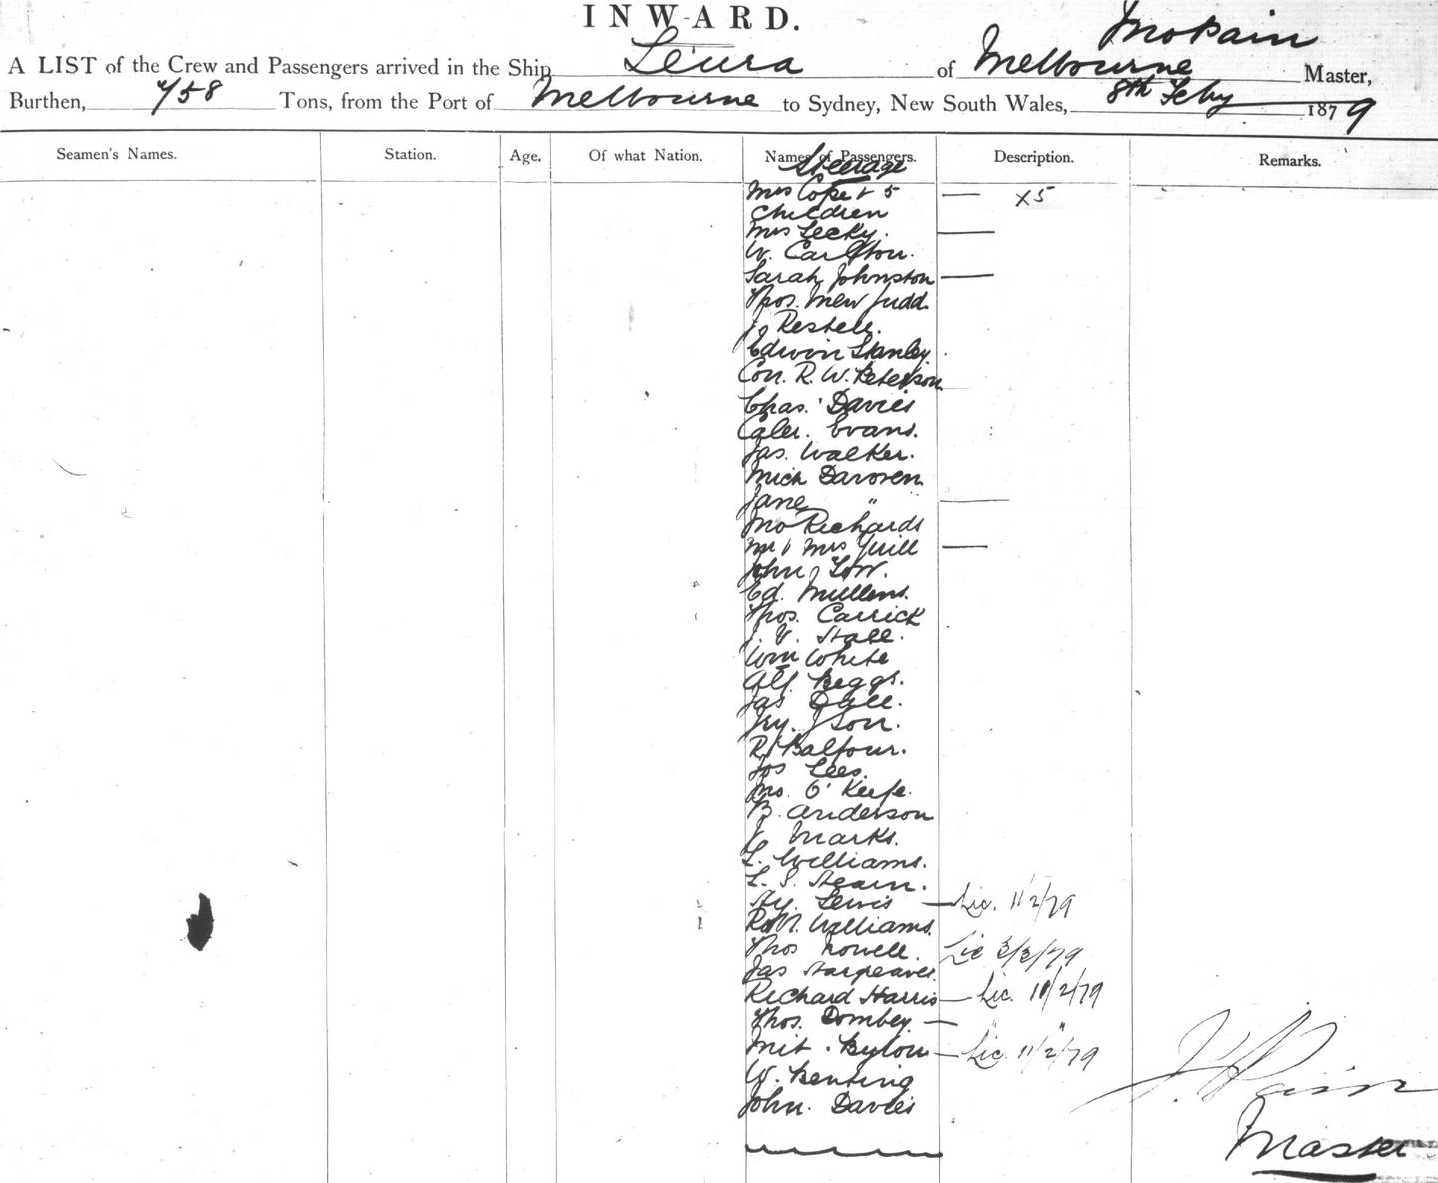 INWARD.
Jno Pain
A LIST of the Crew and Passengers arrived in the Ship Leura of Melbourne Master,
Burthen, 458 Tons, from the Port of Melbourne to Sydney, New South Wales, 8th Feby 1879
Seamen's Names. Station. Age. Of what Nation. Names of Passengers. Description. Remarks.
Steerage
Mrs Cope & 5 — x5
Children
Mrs Lecky. —
W. Carlton.
Sarah Johnston —
Thos. Mew Judd.
J. Restell.
Edwin Stanley.
Con. R. W. Peterson
Chas. Davies
Caler. Evans.
Jas. Walker.
Mich
Jane " —
Jno Richards
Mr & Mrs Quill —
John Low.
Ed. Mullens.
Thos. Carrick
J. V. Stall.
Wm White
Alf Beggs.
Jas
Hy.
R. Balfour.
Jos Lees.
Jno. O'Keefe.
B. Anderson
V. Marks.
L. Williams.
L. S. Stearn.
Hy. Lewis — Lic. 11/2/79
Williams.
Thos Nowell. Lic 3/3/79
Jas Hargeaves.
Richard Harris — Lic. 10/2/79
Thos. Dombey — " "
— Lic. 11/2/79
W. Benting
John. Davies
J. Pain
Master